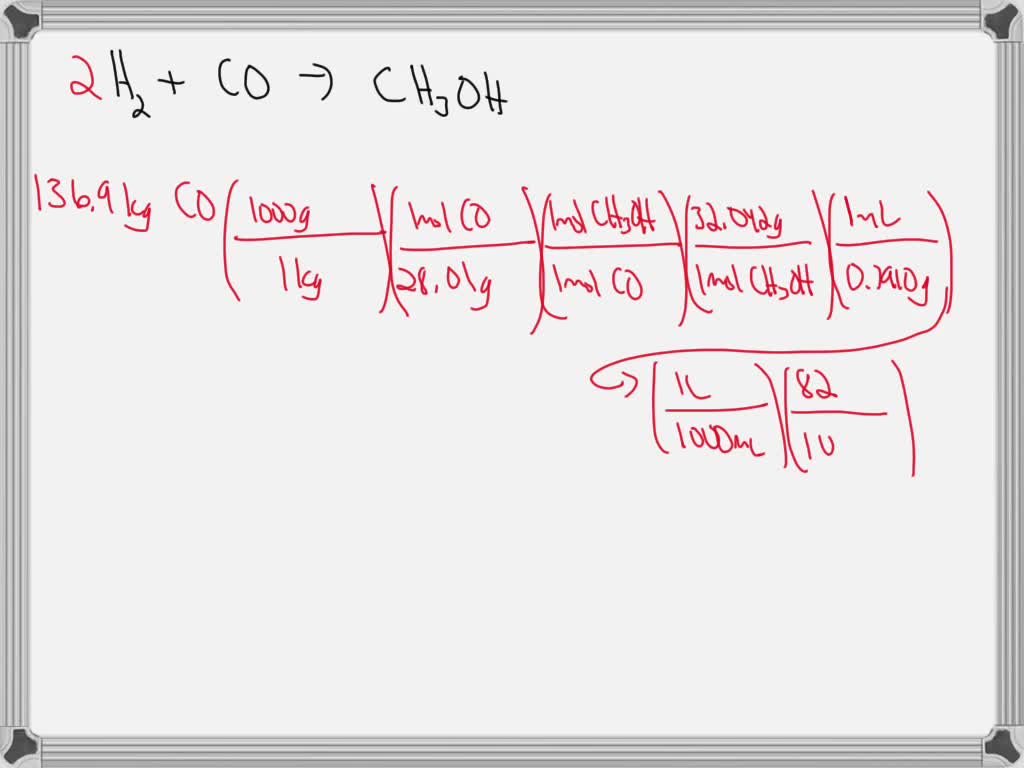 2H₂ + CO → CH₃OH
136.9 kg CO (1000g / 1 kg)(1mol CO / 28.01g)(1mol CH₃OH / 1mol CO)(32.042g / 1mol CH₃OH)(1mL / 0.7910g)
(1L / 1000mL)(82 / 10)